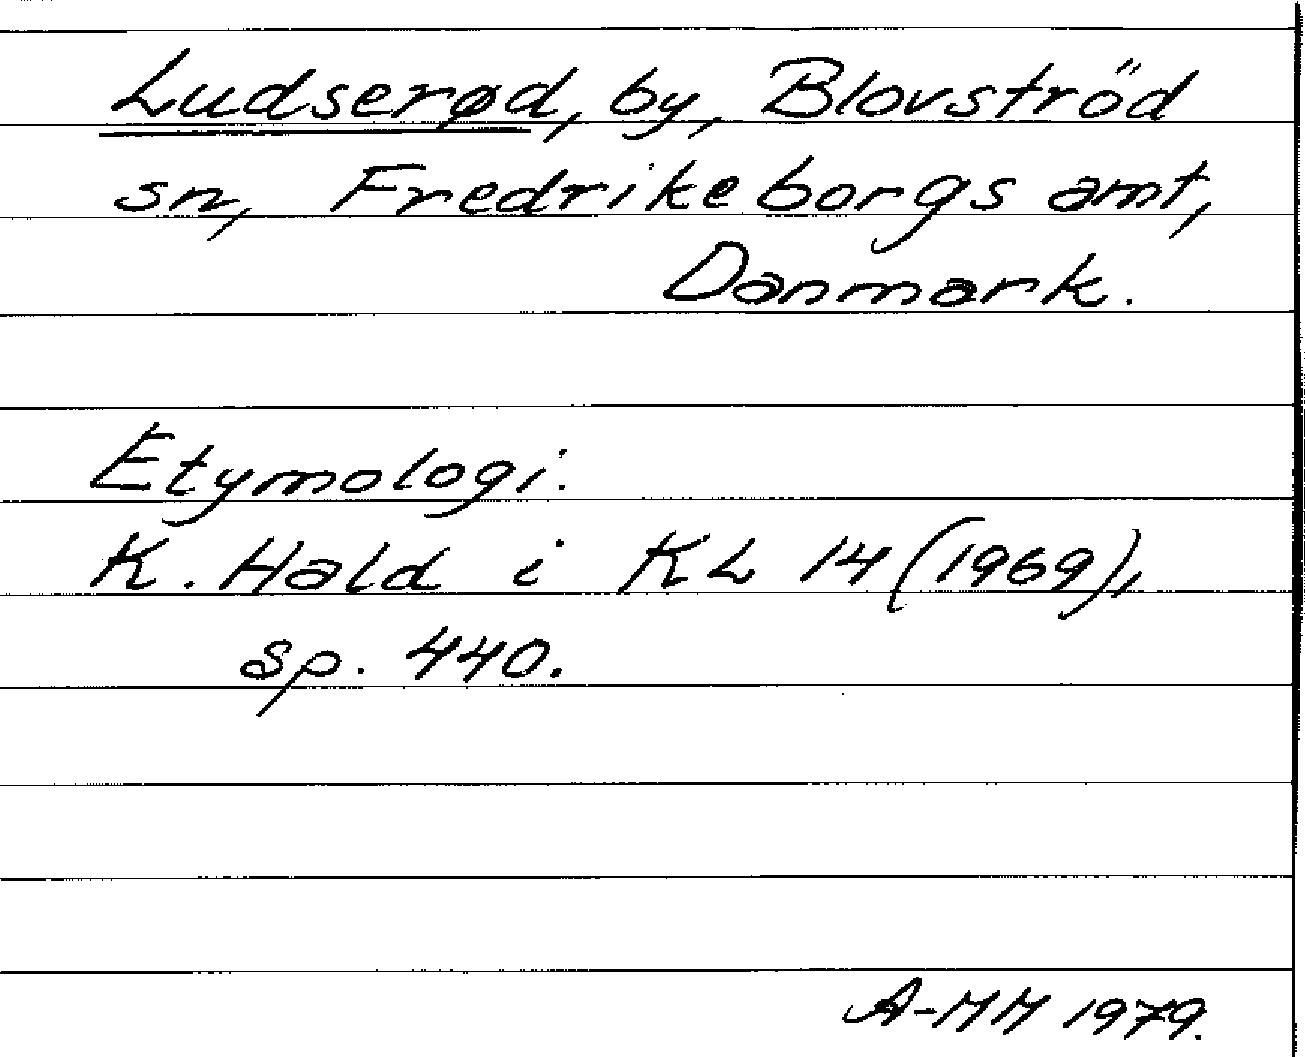 Ludserød, by, Blovströd
sn, Fredrikeborgs amt,
Danmark.
Etymologi:
K. Hald i KL 14 (1969),
sp. 440.
A-MM 1979.